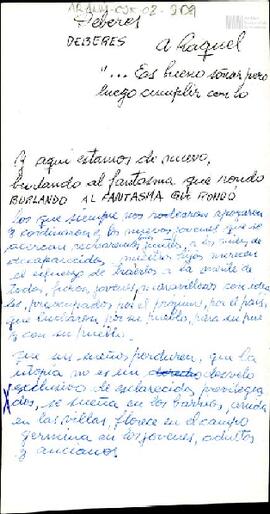 Deberes
DEBERES
A Raquel
"... Es bueno soñar, pero
luego cumplir con lo
Y aqui estamos de nuevo,
burlando al fantasma que rondó
BURLANDO AL FANTASMA QUE RONDÓ
los que siempre nos rodearon apoyaron
y los nuevos jovenes que se
acercan juntos, a los miles de
desaparecidos, nuestros hijos merecen
el esfuerzo de traerlos a la mente de
todos, jovenes, maravillosos con
preocupados por el projimo, por el pais,
que lucharon por su pueblo, para su pueblo
y con su pueblo.
Que sus sueños perduren, que la
utopia no es un desvelo
exclusivo de esclarecidos privilegia
dos, se sueña en los barrios, anida
en las villas, florece en el campo
germina en los jovenes, adultos
y ancianos